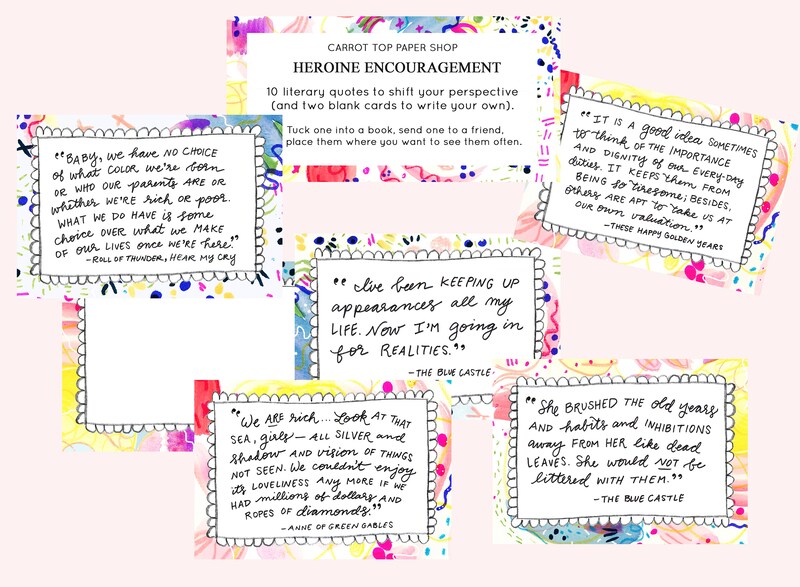 CARROT TOP PAPER SHOP
HEROINE ENCOURAGEMENT
10 literary quotes to shift your perspective
(and two blank cards to write your own).
Tuck one into a book, send one to a friend,
place them where you want to see them often.
"BABY, WE have NO CHOICE
of what COLOR we're born
OR WHO OUR parents ARE OR
whether WE'RE rich or poor.
WHAT WE DO HAVE is some
choice OVER what we MAKE
OF OUR LIVES once WE'RE here."
-ROLL OF THUNDER, HEAR MY CRY
"IT IS A good idea SOMETIMES
to think OF THE IMPORTANCE
AND DIGNITY of our EVERY-DAY
duties. IT KEEPS them FROM
BEING so tiresome; BESIDES,
others ARE APT to take US AT
OUR OWN valuation."
-THESE HAPPY GOLDEN YEARS
"I've been KEEPING UP
appearances all my
LIFE. Now I'M going in
for REALITIES."
-THE BLUE CASTLE
"We ARE rich... Look AT THAT
SEA, girls- ALL SILVER and
shadow AND vision OF THINGS
NOT SEEN. We couldn't enjoy
its LOVELINESS ANY MORE IF WE
HAD millions of dollars AND
ROPES OF diamonds."
-ANNE OF GREEN GABLES
"She BRUSHED THE old years
AND habits and INHIBITIONS
away FROM HER like dead
LEAVES. She would NOT be
littered WITH THEM."
-THE BLUE CASTLE